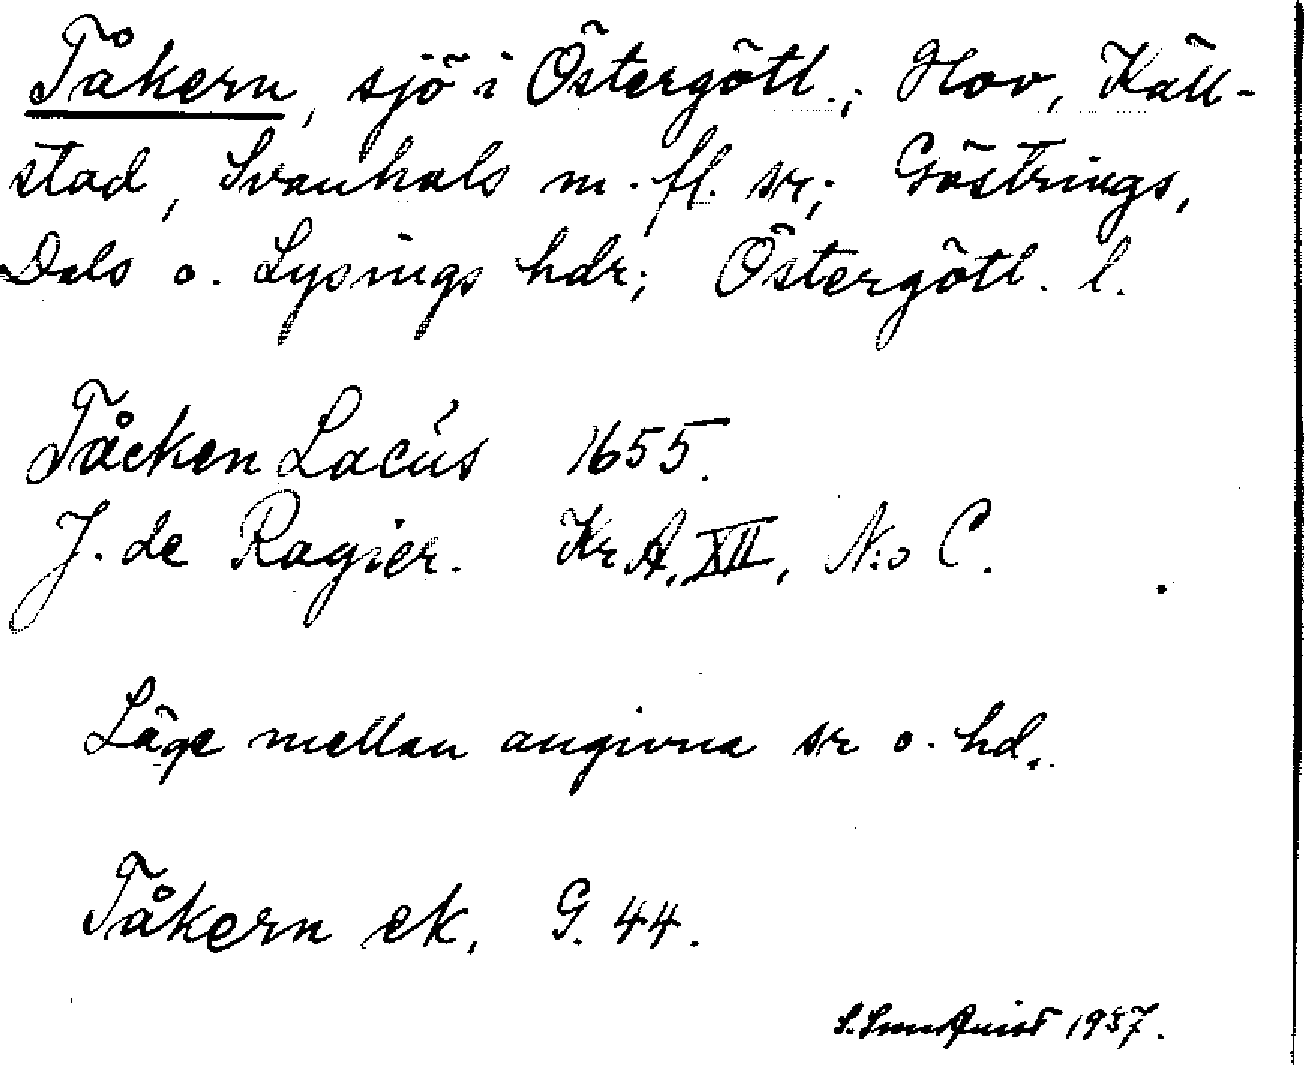 Tåkern, sjö i Östergötl.; Hov, Käll-
stad, Svanhals m. fl. snr; Göstrings,
Dals o. Lysings hdr; Östergötl. l.
Tåcken Lacus 1655.
J. de Rogier. Kr A, XII, N:o C.
Läge mellan angivna snr o. hd.
Tåkern ek. G. 44.
1937.